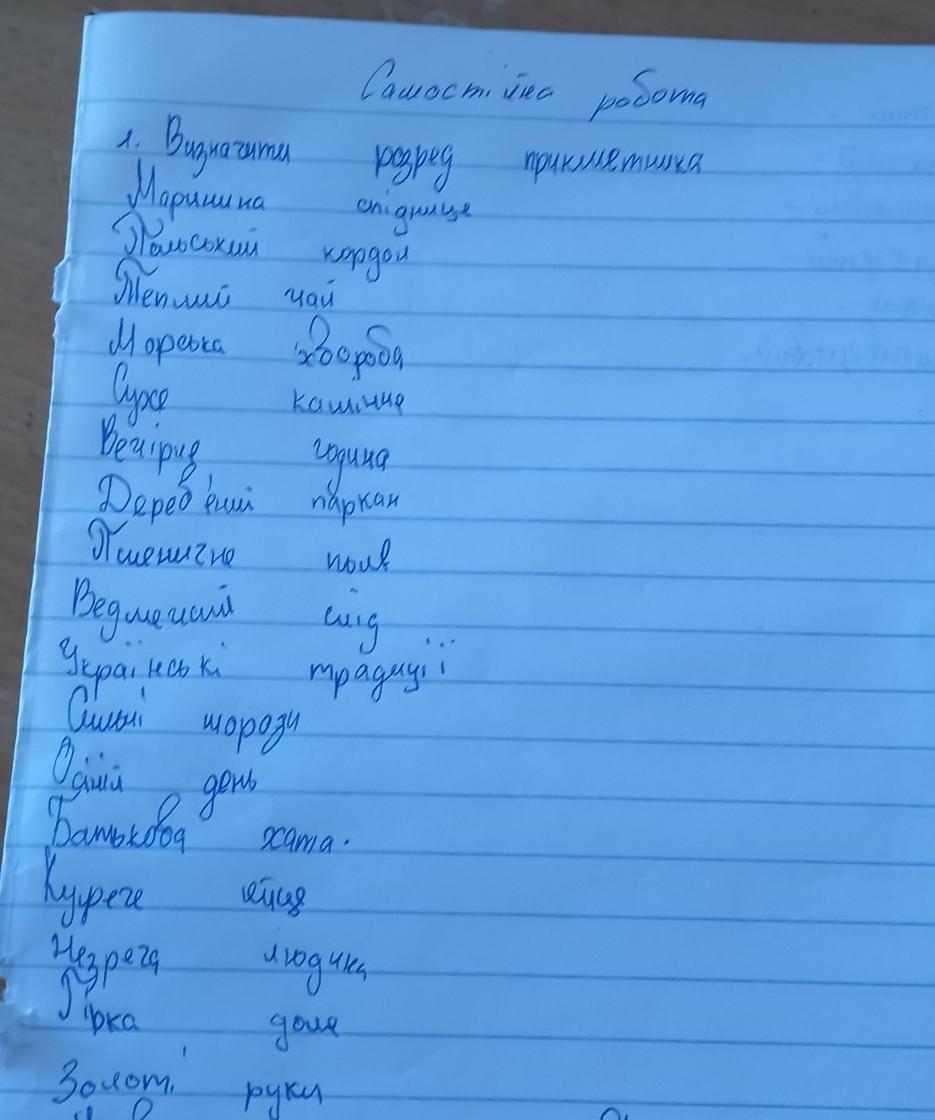 Самостійна робота
1. Визначити розред прикметника
Маринина спідниця
Польський кордон
Теплий чай
Морська хвороба
Сухе каміння
Вечірня година
Дерев'яний паркан
Пшеничне поле
Ведмечий слід
Українські традиції
Сильні морози
Осіній день
Батькова хата.
Куряче яйце
Незряча людина
Гірка доля
Золоті руки